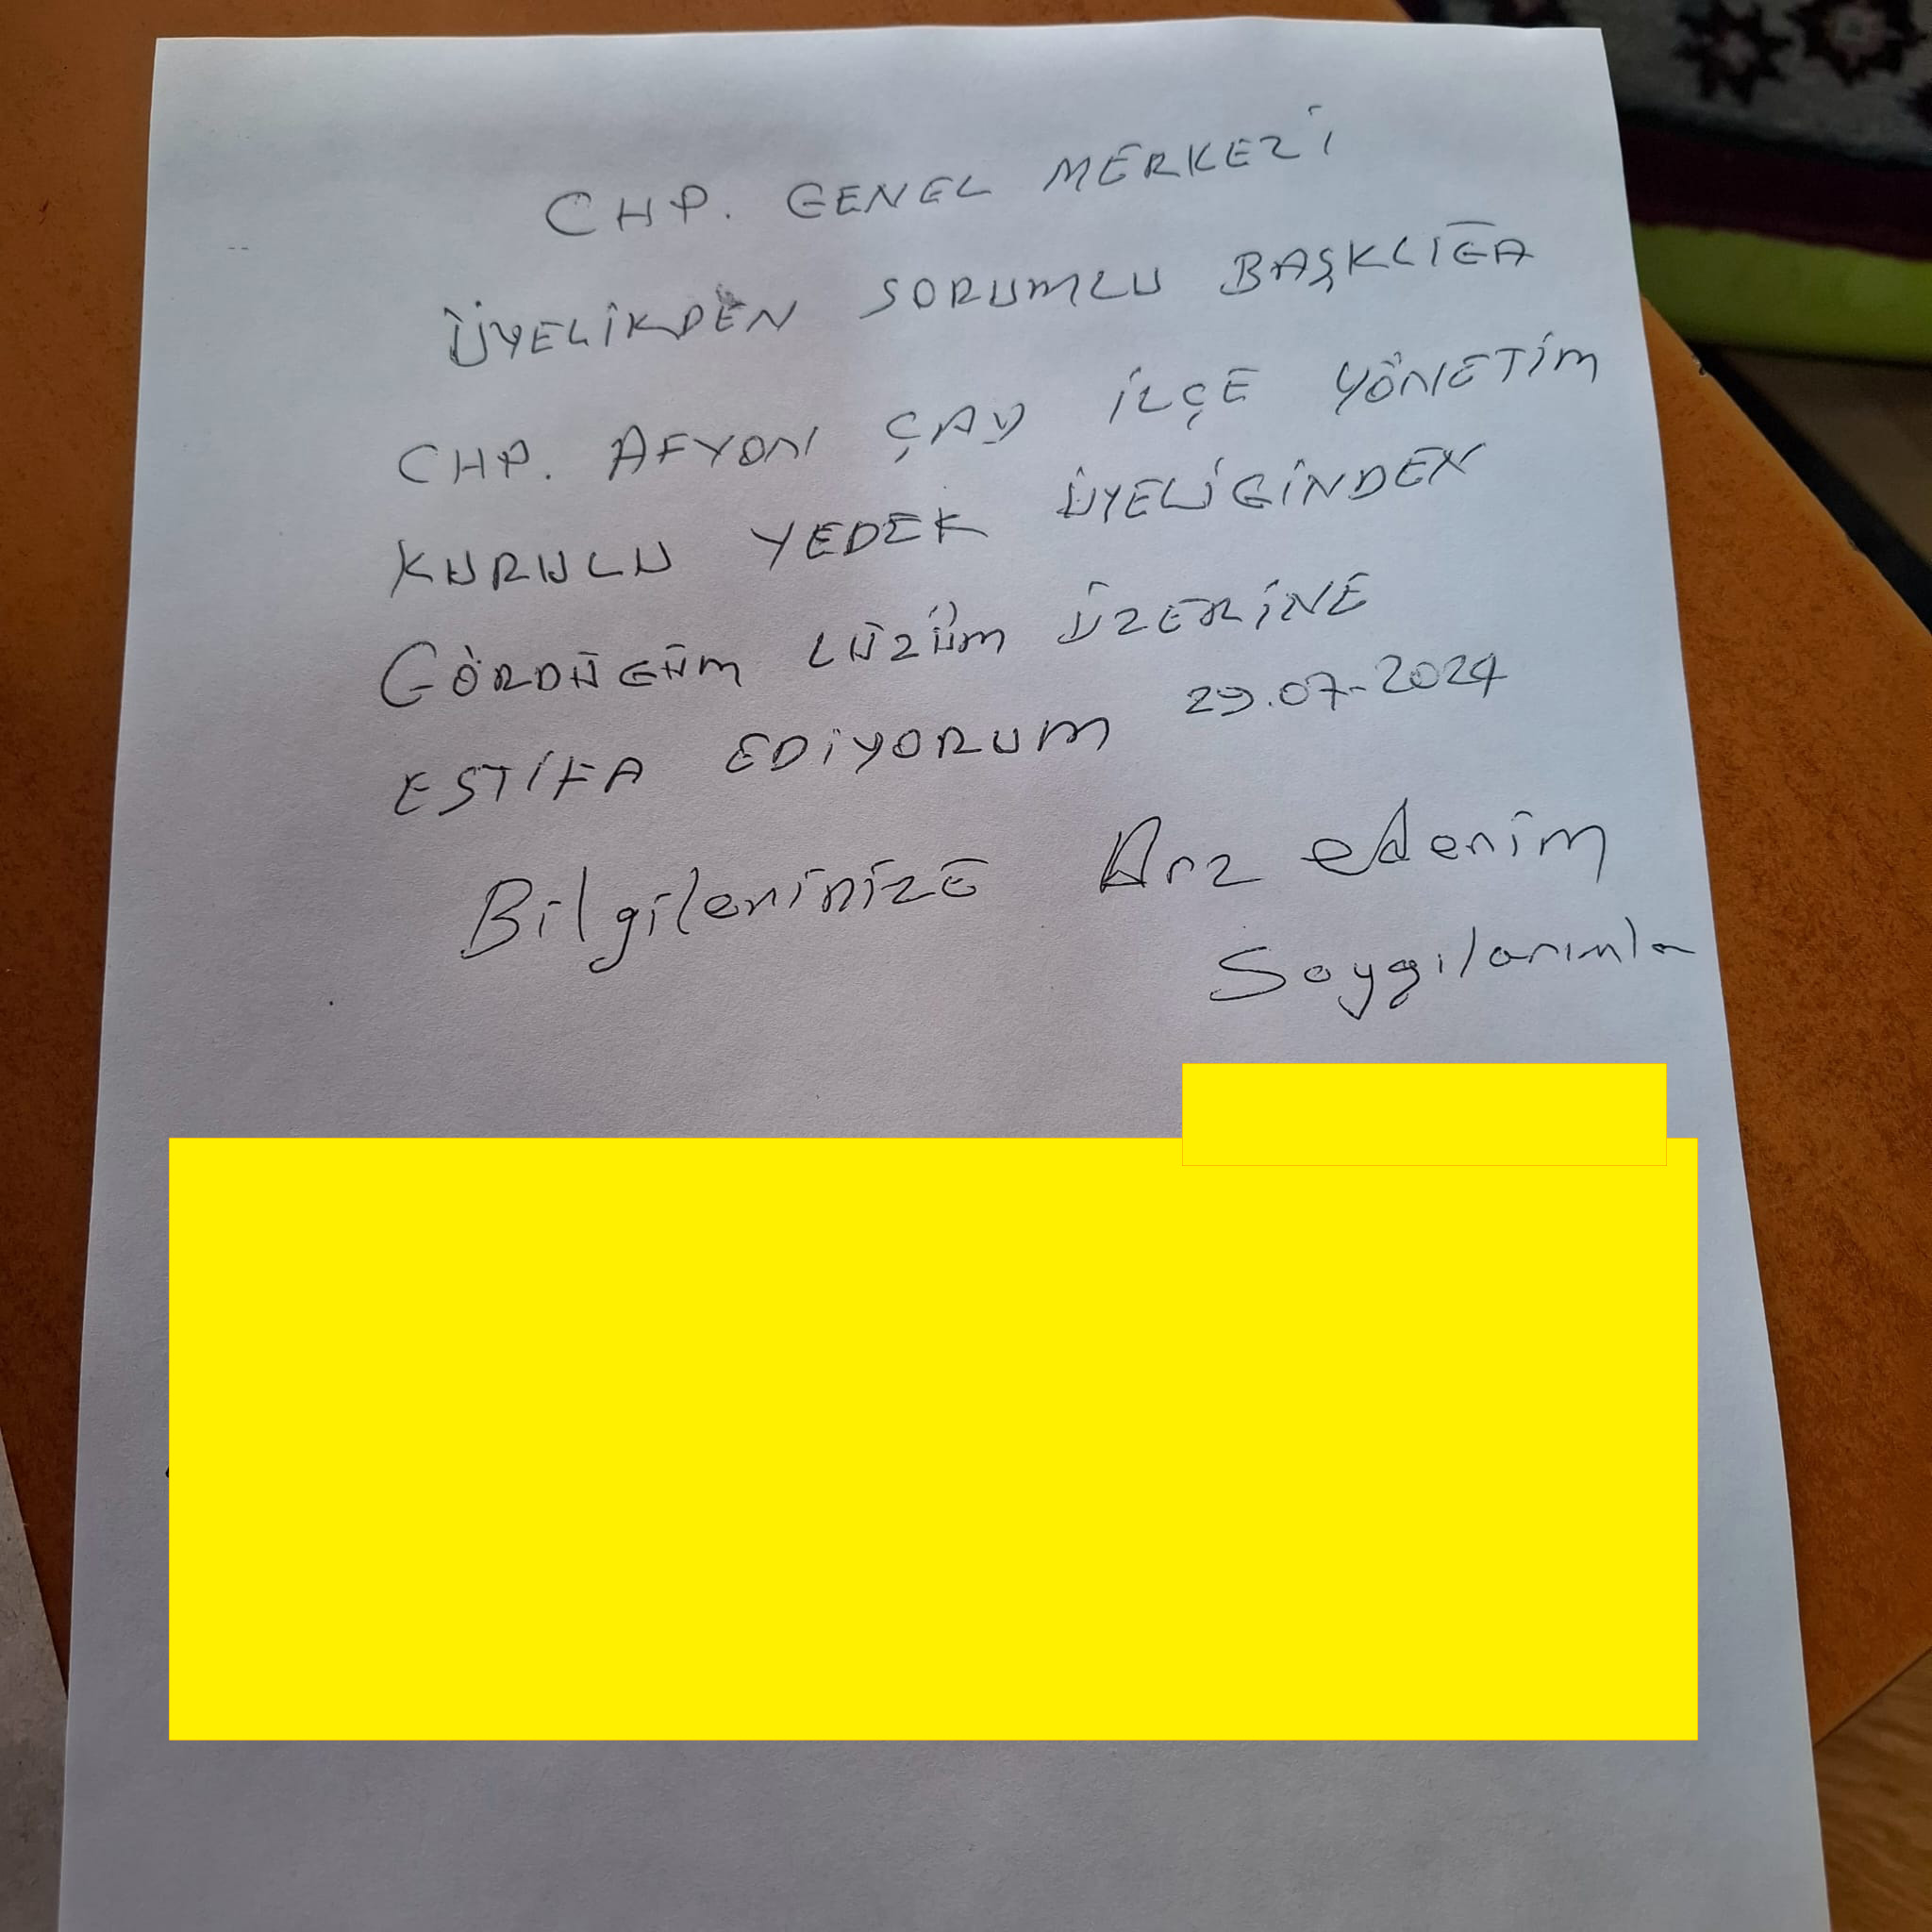 CHP. GENEL MERKEZİ
ÜYELİKDEN SORUMLU BAŞKLIĞA
CHP. AFYON ÇAY İLÇE YÖNETİM
KURULU YEDEK ÜYELİĞİNDEN
GÖRDÜĞÜM LÜZÜM ÜZERİNE
ESTİFA EDİYORUM 29.07-2024
Bilgilerinize Arz ederim
Saygılarımla